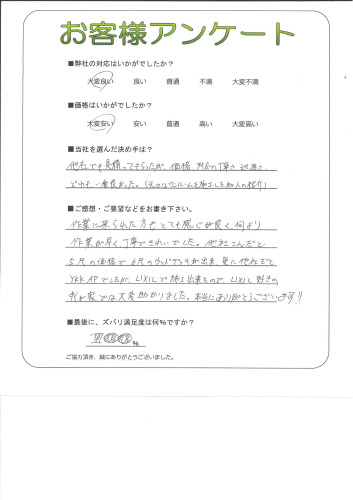 お客様アンケート
■弊社の対応はいかがでしたか？
大変良い 良い 普通 不満 大変不満
■価格はいかがでしたか？
大変安い 安い 普通 高い 大変高い
■当社を選んだ決め手は？
他社でも見積ってもらったが、価格 対応の丁寧さ 迅速さ
どれも一番良かった。
■ご感想・ご要望などをお書き下さい。
作業に来られた方もとても感じが良く、何より
作業が早く、丁寧できれいでした。他社さんだと
5尺の価格で6尺のウッドデッキが出来、更に他社だと
YKK APでしたが、LIXILで施工出来たので、LIXIL好きの
我が家では大変助かりました。本当にありがとうございます!!
■最後に、ズバリ満足度は何％ですか？
％
ご協力頂き、誠にありがとうございました。